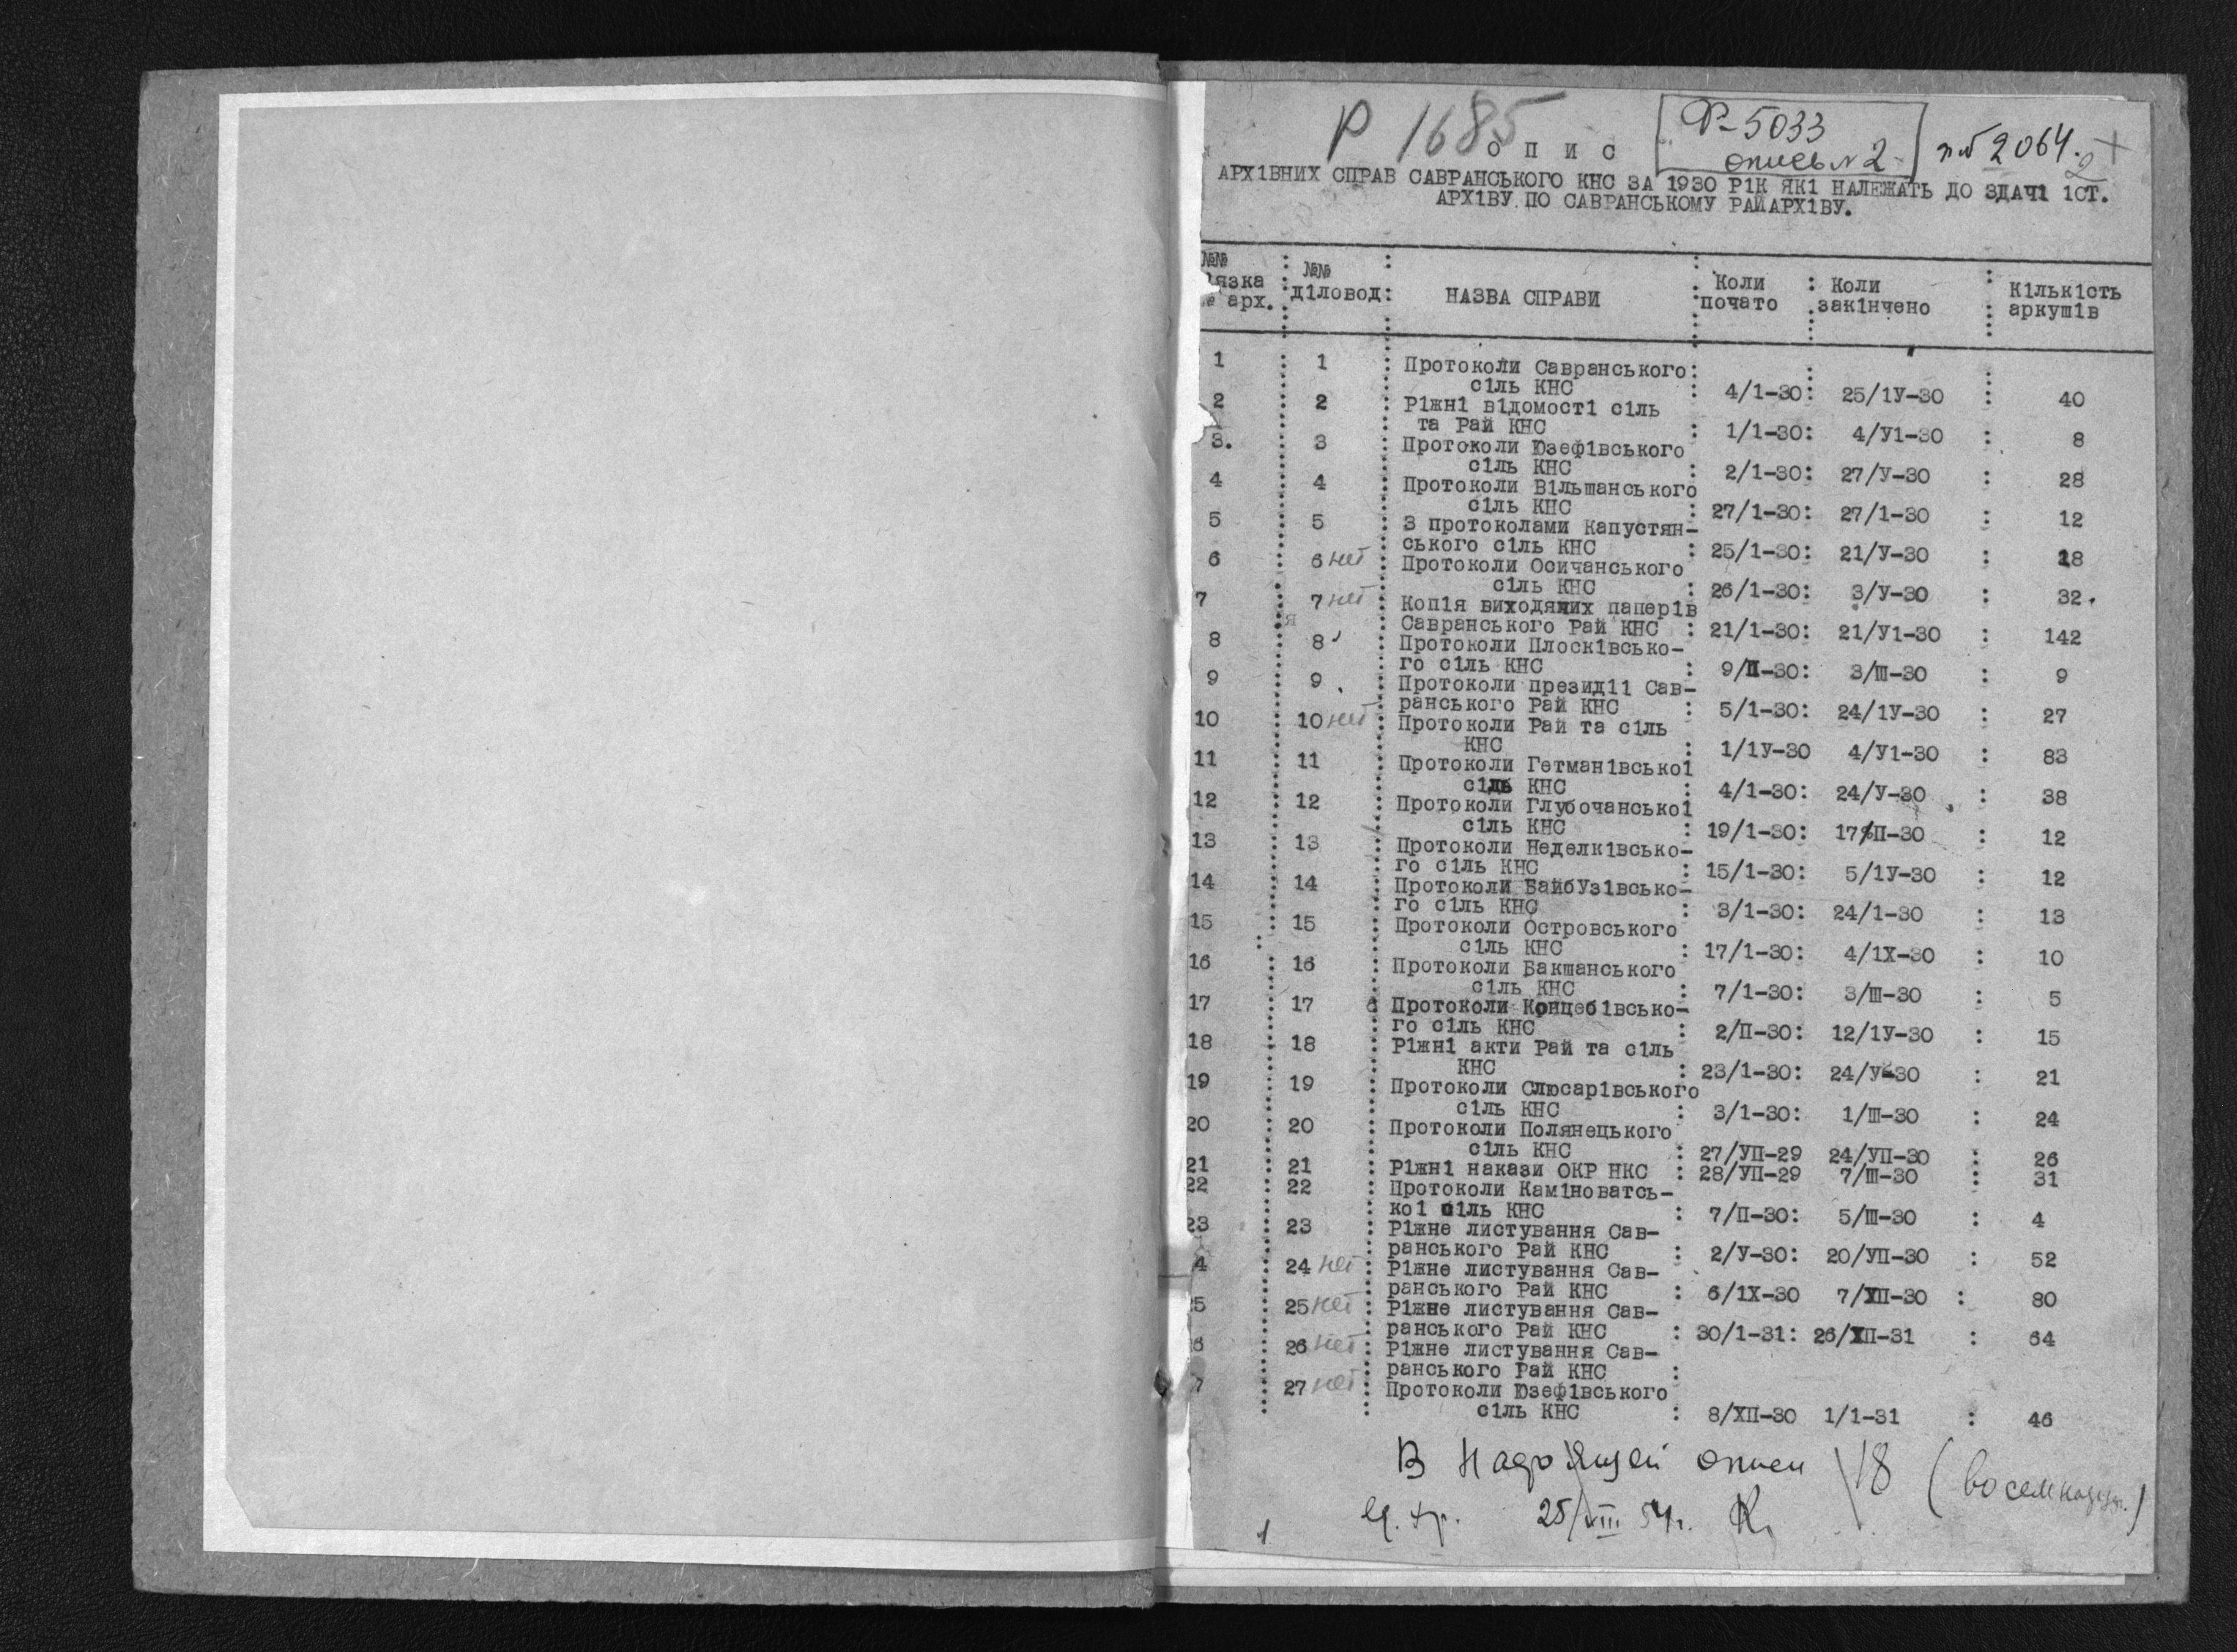 Р 1685
Ф-5033
опись N 2
2064.
2
О П И С
АРХ1ВНИХ СПРАВ САВРАНСЬКОГО КНС ЗА 1930 Р1К ЯК1 НАЛЕЖАТЬ ДО ЗДАЧ1 1СТ.
АРХ1ВУ ПО САВРАНСЬКОМУ РАЙАРХ1ВУ.
№№ язка арх. : №№ д1ловод: НАЗВА СПРАВИ : Коли почато : Коли зак1нчено : К1льк1сть аркуш1в
1 : 1 : Протоколи Савранського:
с1ль КНС : 4/1-30: 25/1У-30 : 40
2 : 2 : Р1жн1 в1домост1 с1ль
та Рай КНС : 1/1-30: 4/У1-30 : 8
3. : 3 : Протоколи Юзеф1вського
с1ль КНС : 2/1-30: 27/У-30 : 28
4 : 4 : Протоколи В1льшанського
с1ль КНС : 27/1-30: 27/1-30 : 12
5 : 5 : З протоколами Капустян-
ського с1ль КНС : 25/1-30: 21/У-30 : 18
6 : 6 нет : Протоколи Осичанського
с1ль КНС : 26/1-30: 3/У-30 : 32.
7 : 7 нет : Коп1я виходячих папер1в
Савранського Рай КНС : 21/1-30: 21/У1-30 : 142
8 : 8 : Протоколи Плоск1всько-
го с1ль КНС : 9/П-30: 3/Ш-30 : 9
9 : 9 : Протоколи презид11 Сав-
ранського Рай КНС : 5/1-30: 24/1У-30 : 27
10 : 10 нет : Протоколи Рай та с1ль
КНС : 1/1У-30 4/У1-30 : 83
11 : 11 : Протоколи Гетман1всько1
с1ль КНС : 4/1-30: 24/У-30 : 38
12 : 12 : Протоколи Глубочансько1
с1ль КНС : 19/1-30: 17/П-30 : 12
13 : 13 : Протоколи Неделк1всько-
го с1ль КНС : 15/1-30: 5/1У-30 : 12
14 : 14 : Протоколи БайбУз1всько-
го с1ль КНС : 3/1-30: 24/1-30 : 13
15 : 15 : Протоколи Островського
с1ль КНС : 17/1-30: 4/1Х-30 : 10
16 : 16 : Протоколи Бакшанського
с1ль КНС : 7/1-30: 3/Ш-30 : 5
17 : 17 : Протоколи Концеб1всько-
го с1ль КНС : 2/П-30: 12/1У-30 : 15
18 : 18 : Р1жн1 акти Рай та с1ль
КНС : 23/1-30: 24/У-30 : 21
19 : 19 : Протоколи Слюсар1вського
с1ль КНС : 3/1-30: 1/Ш-30 : 24
20 : 20 : Протоколи Полянецького
с1ль КНС : 27/УП-29 24/УП-30 : 26
21 : 21 : Р1жн1 накази ОКР НКС : 28/УП-29 7/Ш-30 : 31
22 : 22 : Протоколи Кам1новатсь-
ко1 с1ль КНС : 7/П-30: 5/Ш-30 : 4
23 : 23 : Р1жне листування Сав-
ранського Рай КНС : 2/У-30: 20/УП-30 : 52
4 : 24 нет : Р1жне листування Сав-
ранського Рай КНС : 6/1Х-30 7/ХП-30 : 80
5 : 25 нет : Р1жне листування Сав-
ранського Рай КНС : 30/1-31: 26/ХП-31 : 64
6 : 26 нет : Р1жне листування Сав-
ранського Рай КНС :
7 : 27 нет : Протоколи Юзеф1вського
с1ль КНС : 8/ХП-30 1/1-31 : 46
В настоящей описи 18 (восемнадц.)
ед. хр. 25/VIII 54г.